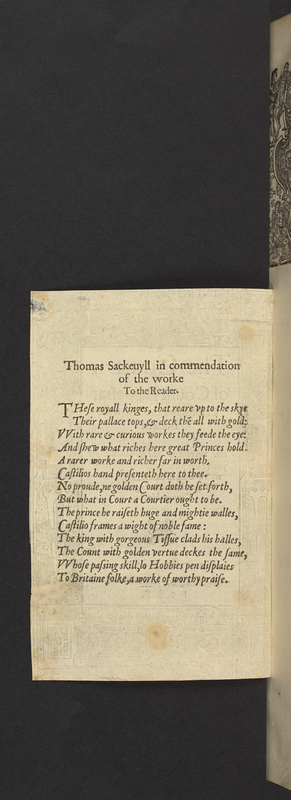 Thomas Sackeuyll in commendation
of the worke
To the Reader.
THeſe royall kinges, that reare vp to the skye
Their pallace tops, & deck thē all with gold:
VVith rare & curious workes they feede the eye:
And ſhew what riches here great Princes hold.
A rarer worke and richer far in worth,
Caſtilios hand preſenteth here to thee.
No proude, ne golden Court doth he ſet forth,
But what in Court a Courtier ought to be.
The prince he raiſeth huge and mightie walles,
Caſtilio frames a wight of noble fame:
The king with gorgeous Tiſſue clads his halles,
The Count with golden vertue deckes the ſame,
VVhoſe paſsing skill, lo Hobbies pen diſplaies
To Britaine folke, a worke of worthy praiſe.